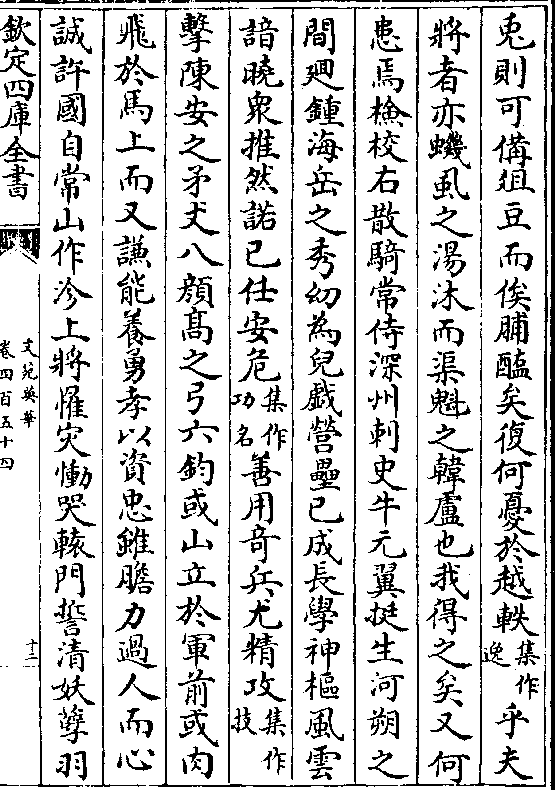 兎則可備俎豆而俟脯醢矣復何憂於越軼集作逸乎夫
將者亦蟣虱之湯沐而渠魁之韓盧也我得之矣又何
患焉檢校右散騎常侍深州刺史牛元翼挺生河朔之
間廻鍾海岳之秀幼為兒戯營壘已成長學神樞風雲
諳曉衆推然諾已仕安危集作功名善用竒兵尤精攻集作技
擊陳安之矛丈八顔髙之弓六鈞或山立於軍前或肉
飛於馬上而又謙能養勇孝以資忠雖膽力過人而心
誠許國自常山作沴上將罹灾慟哭轅門誓清妖孽羽
欽定四庫全書
文苑英華
卷四百五十四
十二